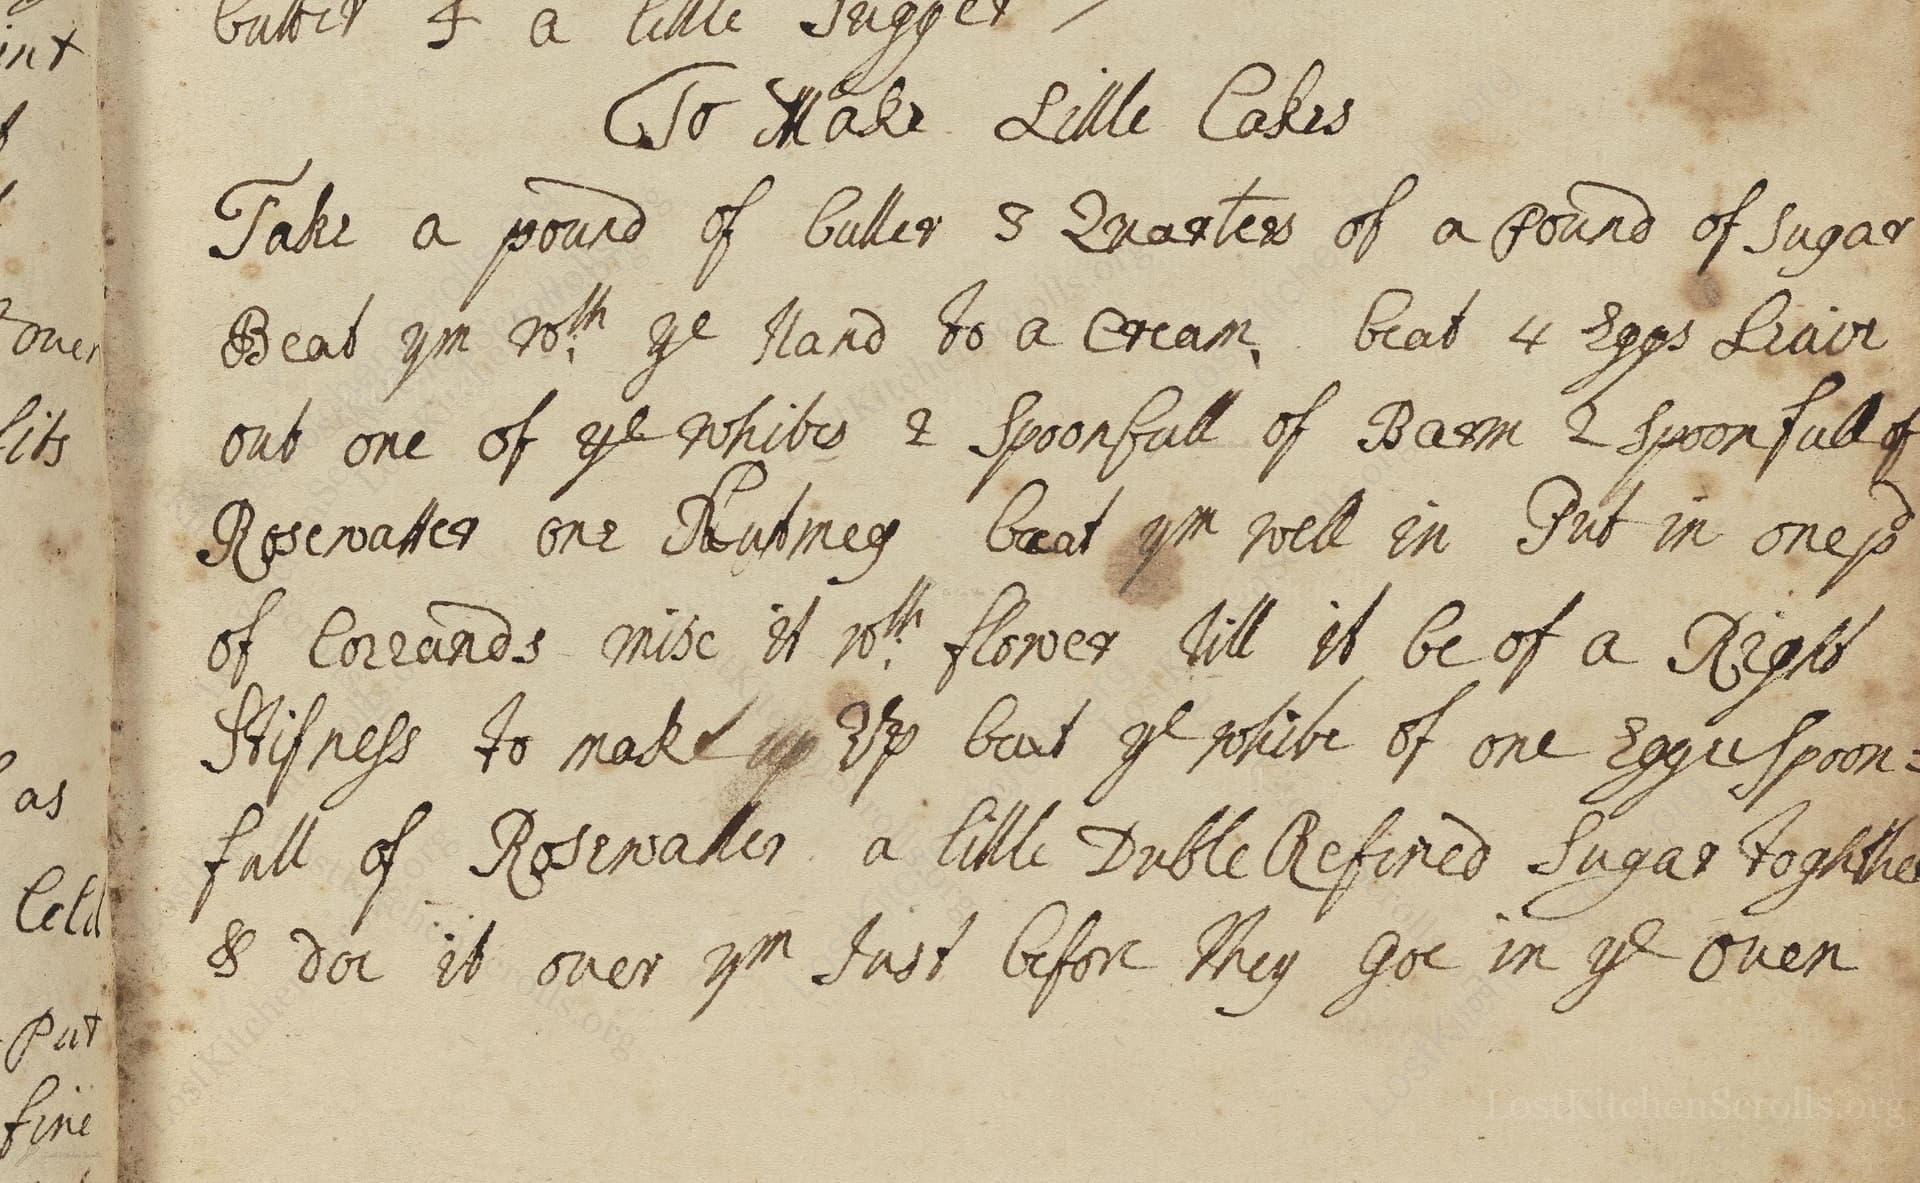 butter & a little Sugger
To Make Little Cakes
Take a pound of butter 3 Quarters of a Pound of Sugar
Beat ym wth ye Hand to a Cream, beat 4 Eggs Leave
out one of ye whites 2 spoonfull of Barm 2 spoonfull of
Rosewatter one Nutmeg beat ym well in Put in one pd
of Corrands misc it wth flower till it be of a Right
Stifness to make Up beat ye white of one Egge spoon=
full of Rosewatter a little Duble Refined Sugar
& doe it over ym Just before They goe in ye Ouen
int
ouer
as
Cold
Put
fine
LostKitchenScrolls.org